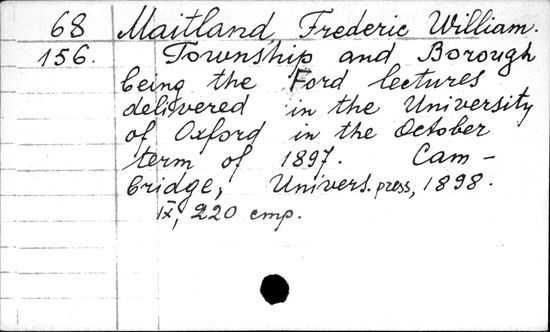 68 Maitland, Frederic William.
156. Township and Borough
being the Ford lectures
delivered in the University
of Oxford in the October
term of 1897. Cam-
bridge, Univers. press, 1898.
IX, 220 стр.